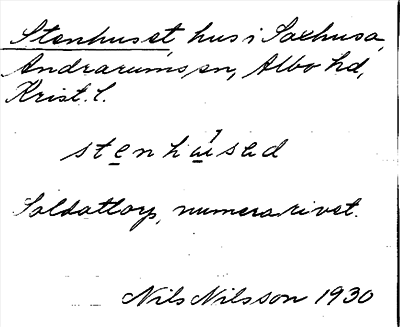 Stenhuset, hus i Saxhusa,
Andrarums sn, Albo hd,
Krist. l.
stenhusəd
Soldattorp, numera rivet.
Nils Nilsson 1930